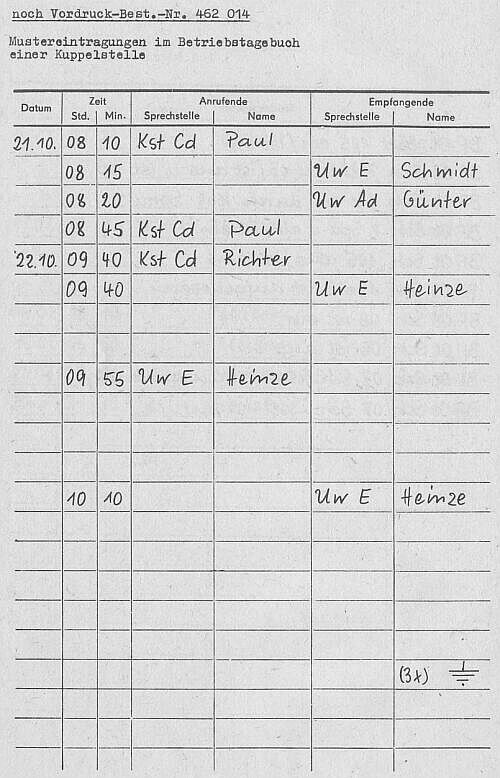 noch Vordruck-Best.-Nr. 462 014
Mustereintragungen im Betriebstagebuch
einer Kuppelstelle
Datum Zeit Anrufende Empfangende
Std. Min. Sprechstelle Name Sprechstelle Name
21.10. 08 10 Kst Cd Paul
08 15 Uw E Schmidt
08 20 Uw Ad Günter
08 45 Kst Cd Paul
22.10. 09 40 Kst Cd Richter
09 40 Uw E Heinze
09 55 Uw E Heinze
10 10 Uw E Heinze
(3x)